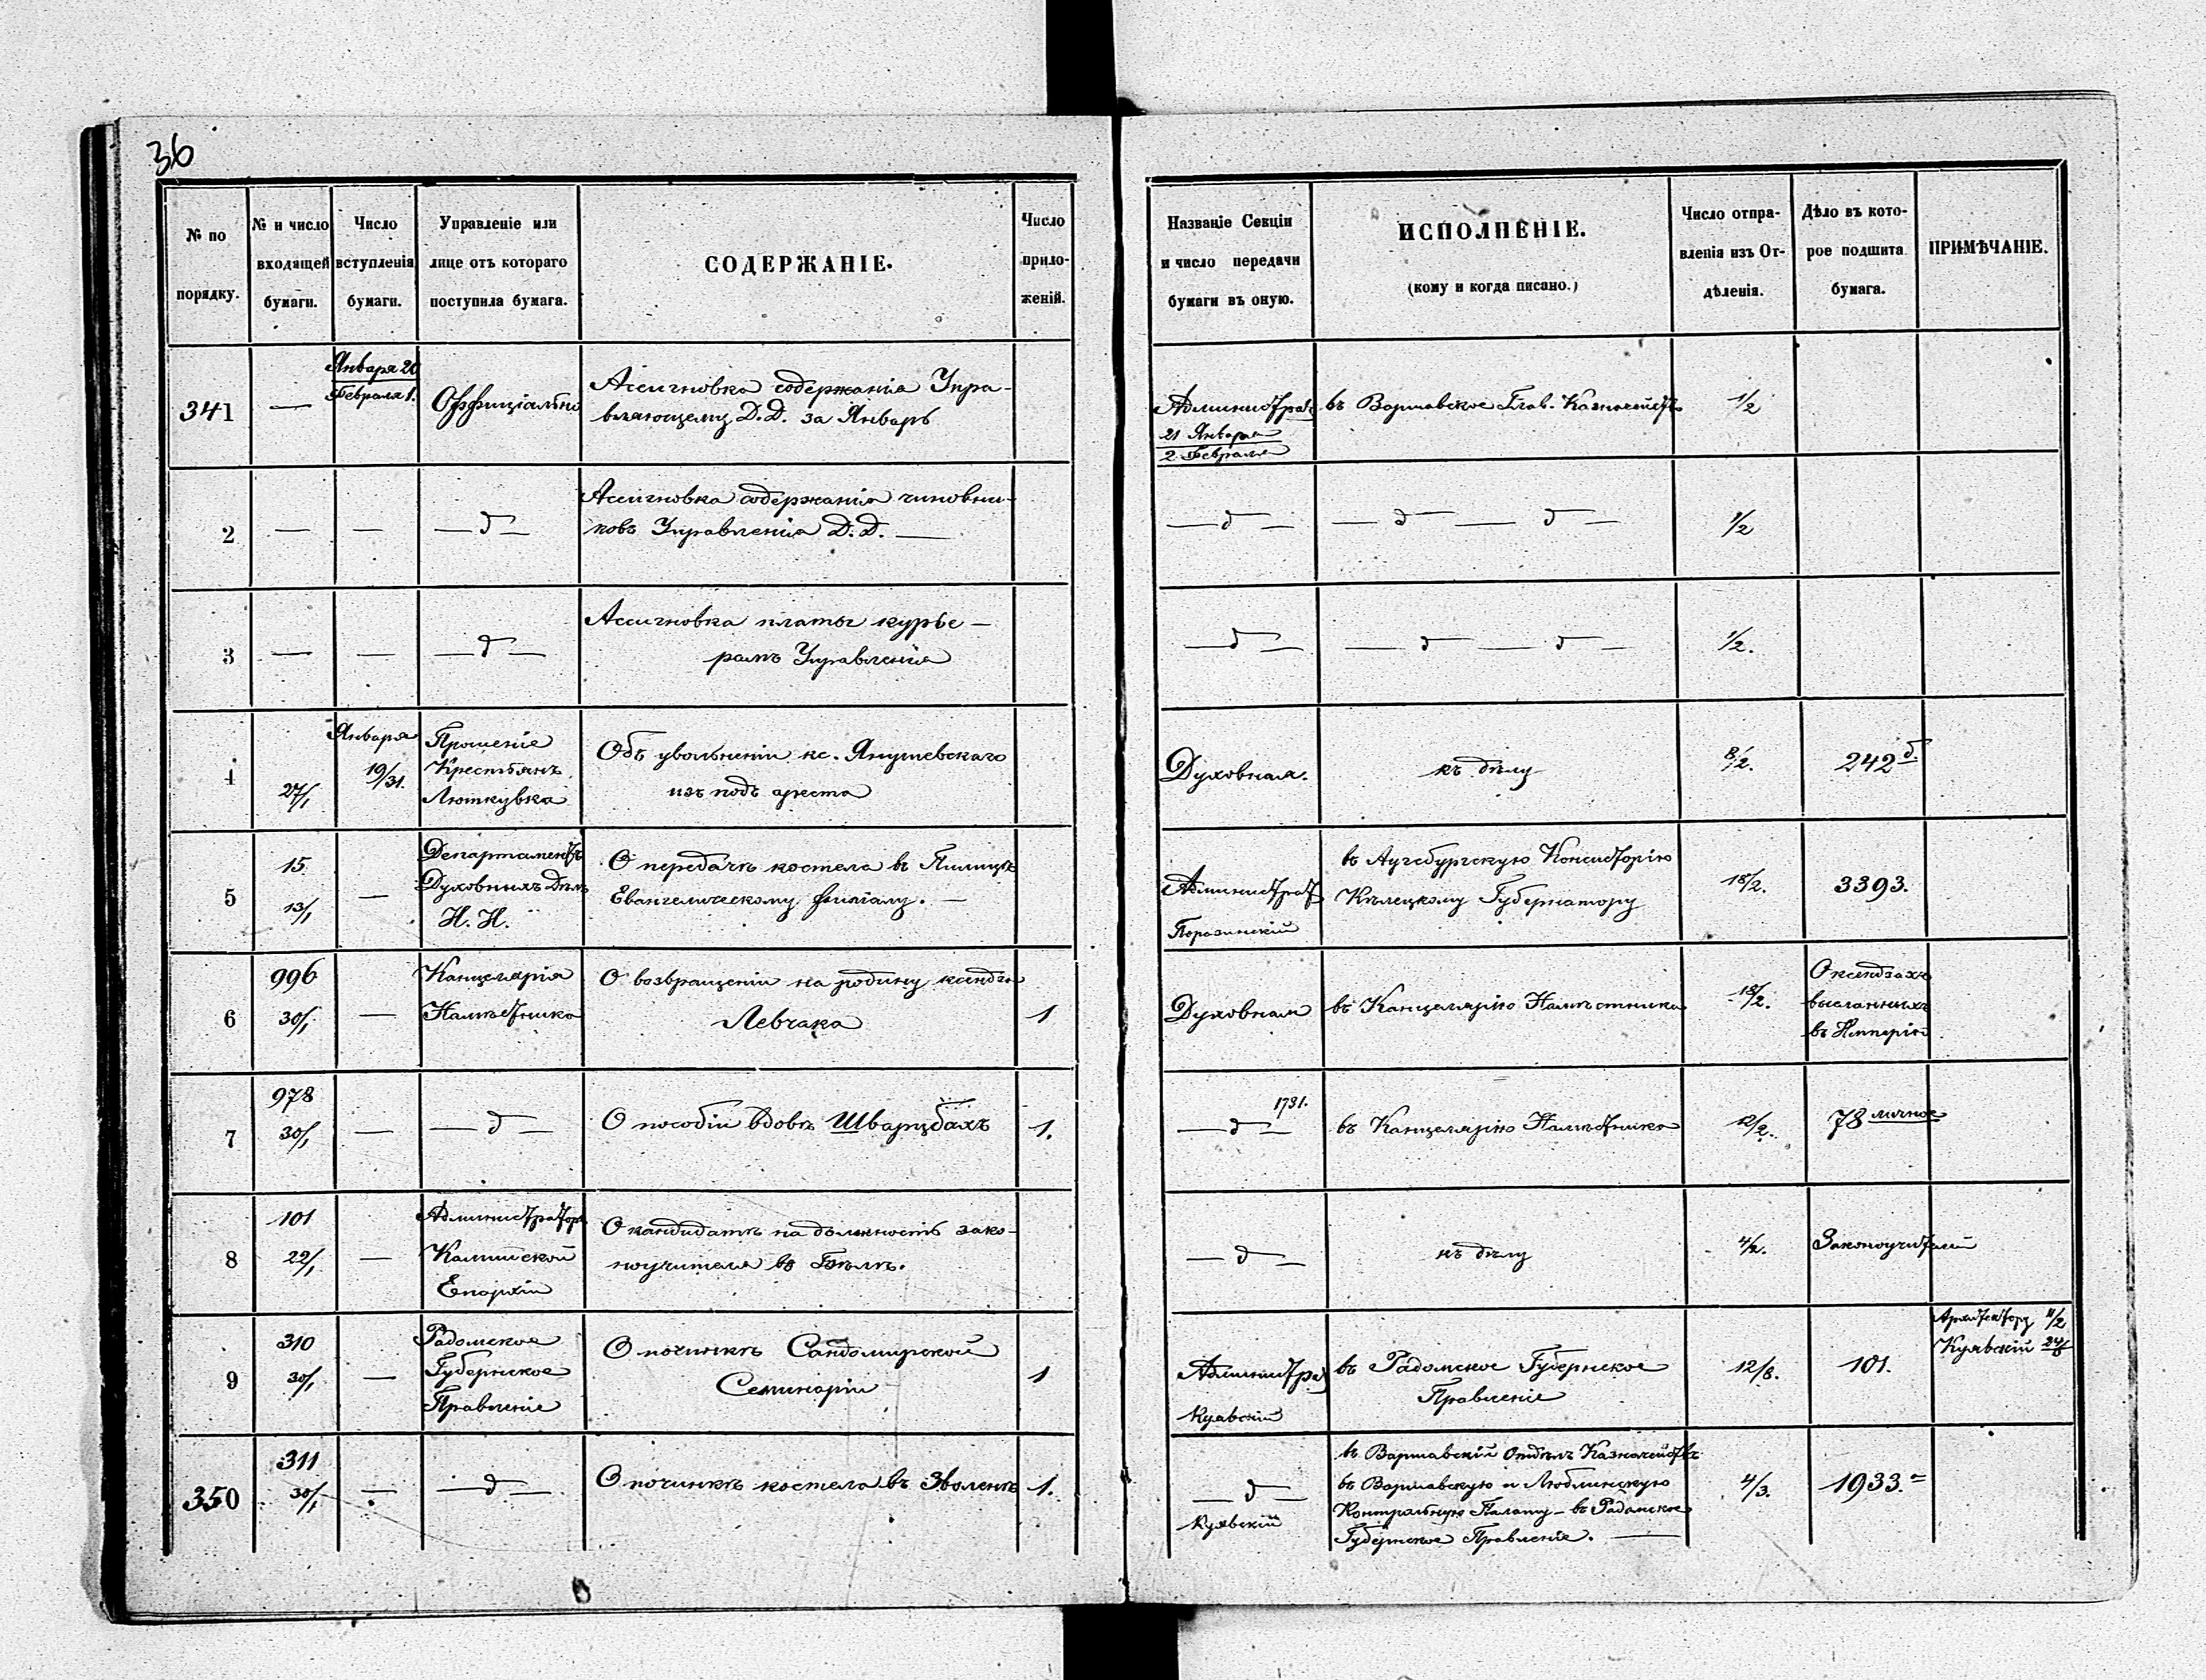 36
№ по порядку.
№ и число входящей бумаги.
Число вступленія бумаги.
Управленіе или лице отъ котораго поступила бумага.
СОДЕРЖАНІЕ.
Число приложеній.
Названіе Секціи и число передачи бумаги въ оную.
ИСПОЛНЕНІЕ.
(кому и когда писано.)
Число отправленія изъ Отдѣленія.
Дѣло въ которое подшита бумага.
ПРИМѢЧАНІЕ.
341
—
Января 20
Февраля 1.
Оффиціально
Ассигновка содержанія Упра-
вляющему Д.Д. за Январь
Администрат
21 Января
2 Февраля
въ Варшавское Глав. Казначейств
1/2
2
—
—
— д —
Ассигновка содержанія чиновни-
ковъ Управленія Д.Д. —
— д —
— д — д —
1/2
3
—
—
— д —
Ассигновка платы курье-
рамъ Управленія
— д —
— д — д —
1/2.
4
27/1
Января
19/31.
Прошеніе
Крестьянъ
Люткувка
Объ увольненіи кс. Янушевскаго
изъ подъ ареста
Духовная.
къ дѣлу
8/2.
242 б.
5
15
13/1
—
Департаментъ
Духовныхъ Дѣлъ
И. И.
О передачѣ костела въ Пилицѣ
Евангелическому филіалу. —
Администрат
въ Аугсбургскую Консисторію
Кѣлецкому Губернатору
18/2.
3393.
6
996
30/1
—
Канцелярія
Намѣстника
О возвращеніи на родину ксендза
Левчака
1
Духовная
въ Канцелярію Намѣстника
18/2.
О ксендзахъ
высланныхъ
въ Имперію
7
978
30/1
—
— д —
О пособіи вдовѣ Шварцбахъ
1.
1731.
— д —
въ Канцелярію Намѣстника
12/2.
78 личное
8
101
22/1
—
Администраторъ
Калишской
Епархіи
О кандидатѣ на должность зако-
ноучителя въ Бѣлѣ.
— д —
къ дѣлу
4/2.
Законоучителей
9
310
30/1
—
Радомское
Губернское
Правленіе
О починкѣ Сандомирской
Семинаріи
1
Администра
Куявскій
въ Радомское Губернское
Правленіе
12/8.
101.
Архитектору 11/2
Куявскій
350
311
30/1
—
— д —
О починкѣ костела въ Зволенѣ
1.
— д —
Куявскій
въ Варшавскій Отдѣлъ Казначействъ
въ Варшавскую и Люблинскую
Контрольную Палату — въ Радомское
Губернское Правленіе. —
4/3.
1933.